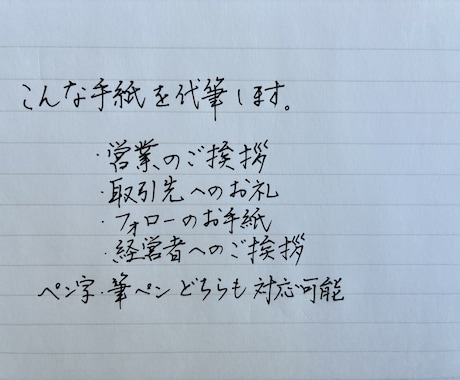 こんな手紙を代筆します。
・営業のご挨拶
・取引先へのお礼
・フォローのお手紙
・経営者へのご挨拶
ペン字・筆ペンどちらも対応可能